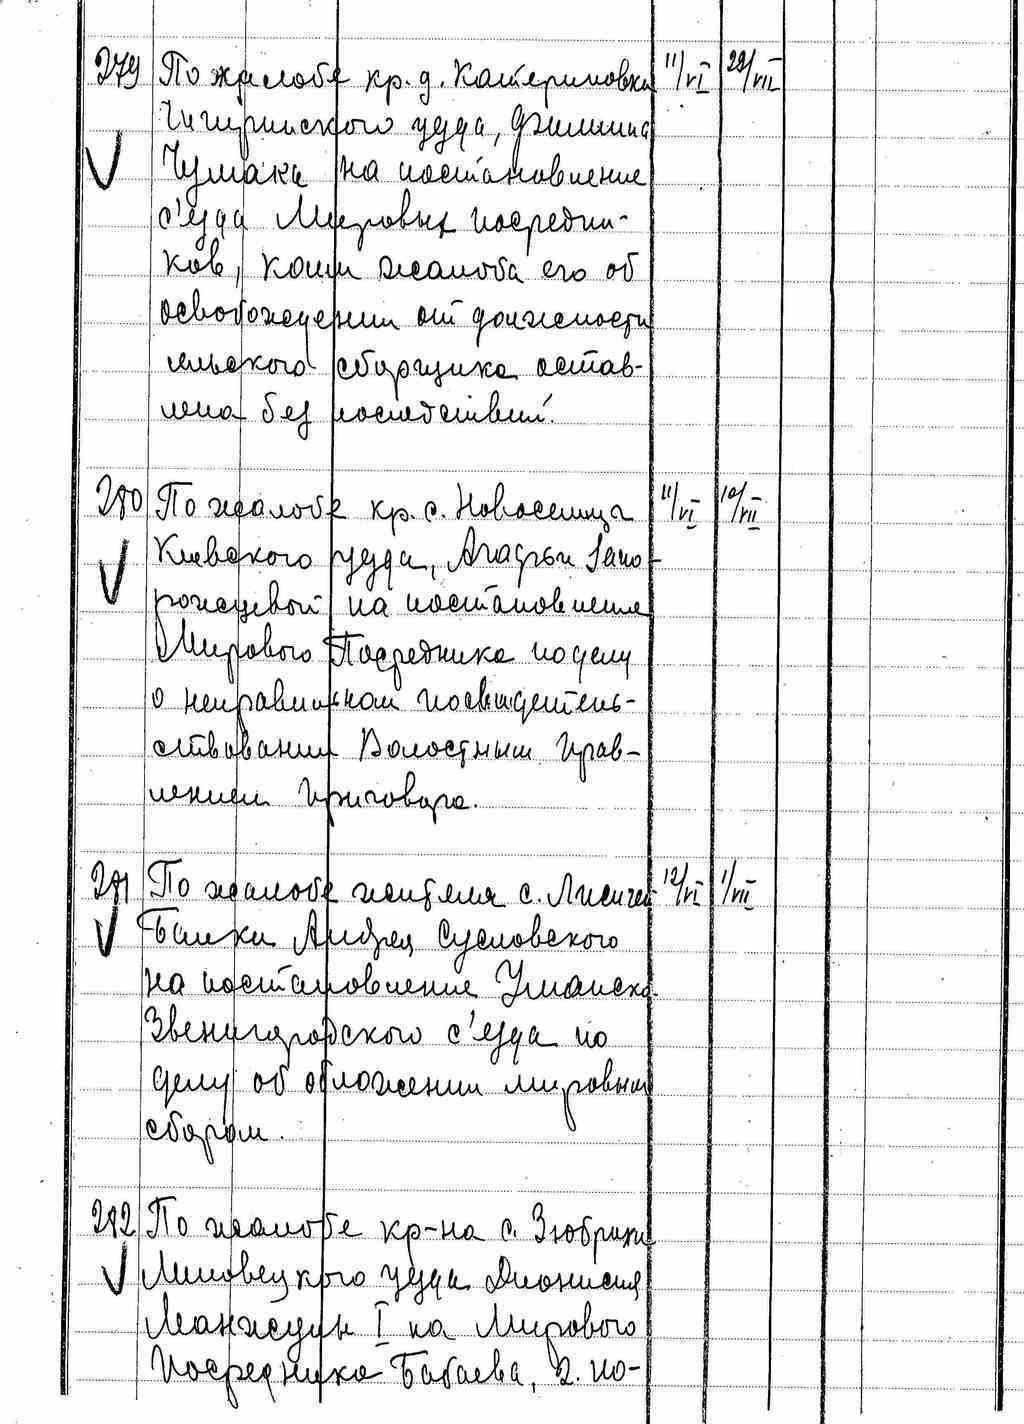 279 По жалобе кр. д. Катериновки 11/VI 28/VII
Чигиринского уезда, Филиппа
Чумака на постановление
с'езда Мировых посредни-
ков, коим жалоба его об
освобождении от должности
сельского сборщика остав-
лена без последствий.
280 По жалобе кр. с. Новоселица 11/VI 10/VII
Киевского уезда, Агафьи Запо-
рожцевой на постановление
Мирового Посредника по делу
о неправильном посвидетель-
ствовании Волостным Прав-
лением Приговора.
281 По жалобе жителя с. Лисичей 12/VI 1/VII
Балки Андрея Сусловского
на постановление Уманско-
Звенигородского с'езда по
делу об обложении мировым
сбором.
282 По жалобе кр-на с. Зюбрихи
Липовецкого уезда Дионисия
I на Мирового
Посредника Бабаева, 2. по-